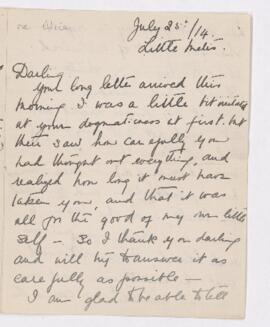 July 25th/14.
Little Metis.
Darling
Your long letter arrived this
morning. I was a little bit
at your dogmaticness at first. but
then saw how carefully you
had thought out everything, and
realized how long it must have
taken you, and that it was
all for the good of my own little
self - So I thank you darling
and will try to answer it as
carefully as possible -
I am glad to be able to tell